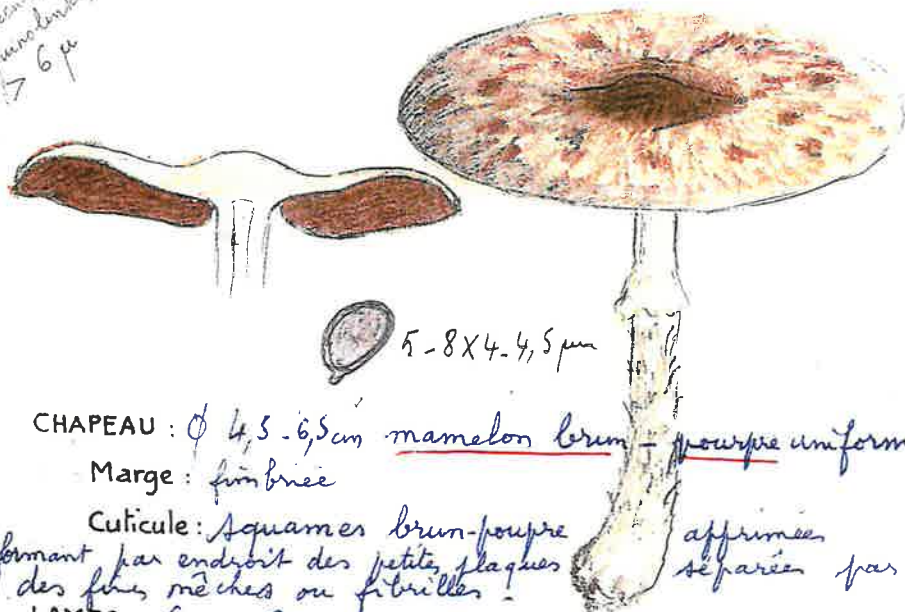 > 6 µ
5-8 x 4-4,5 µm
CHAPEAU : Ø 4,5-6,5cm mamelon brun-pourpre uniform
Marge : fimbriée
Cuticule : Squames brun-poupre apprimées
formant par endroit des petites plaques séparées par
des fines mêches ou fibrilles.